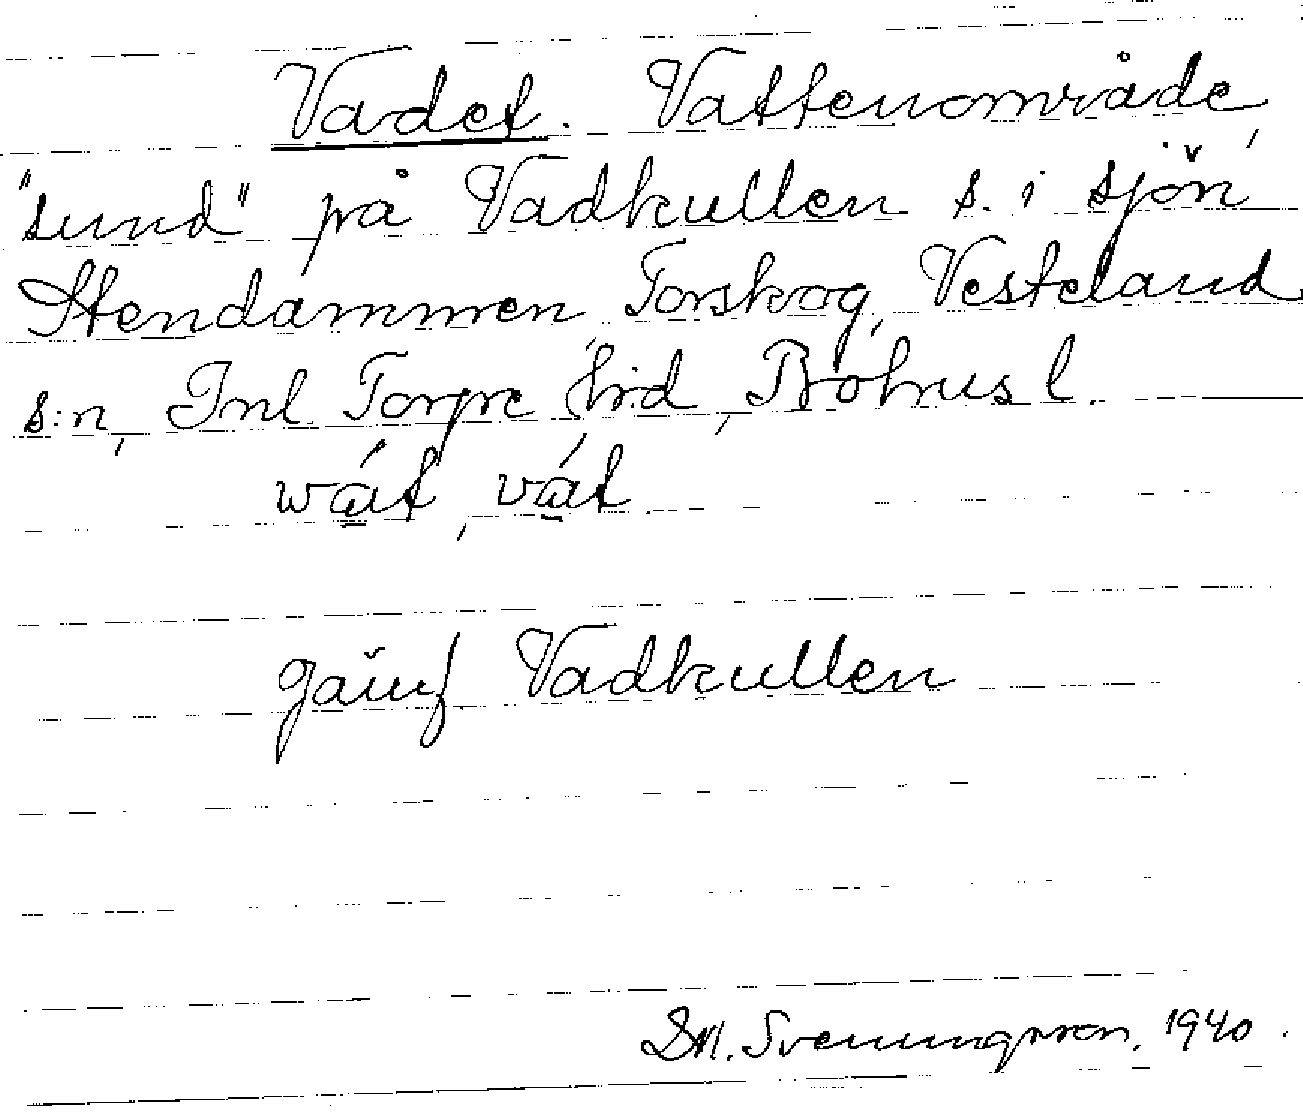 Vadet. Vattenområde,
"sund" på Vadkullen s. i sjön
Stendammen, Torskog, Vesteland
s:n, Inl Torpe hrd, Bohus l.
wát, vát
jämf Vadkullen
Svenungsson. 1940.